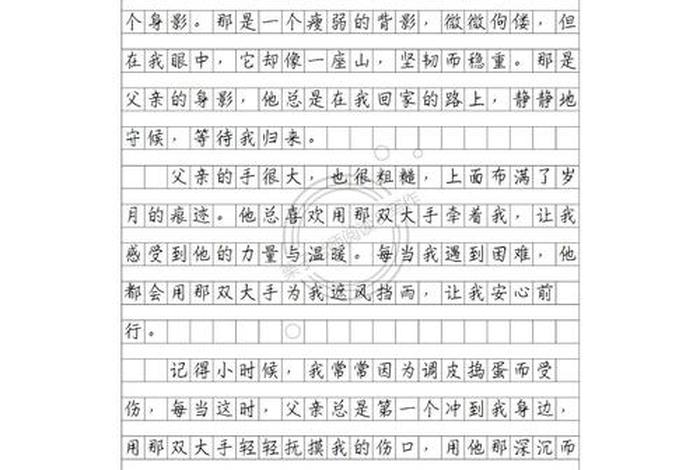 个身影。那是一个瘦弱的背影，微微佝偻，但
在我眼中，它却像一座山，坚韧而稳重。那是
父亲的身影，他总是在我回家的路上，静静地
守候，等待我归来。
父亲的手很大，也很粗糙，上面布满了岁
月的痕迹。他总喜欢用那双大手牵着我，让我
感受到他的力量与温暖。每当我遇到困难，他
都会用那双大手为我遮风挡雨，让我安心前
行。
记得小时候，我常常因为调皮捣蛋而受
伤，每当这时，父亲总是第一个冲到我身边，
用那双大手轻轻抚摸我的伤口，用他那深沉而